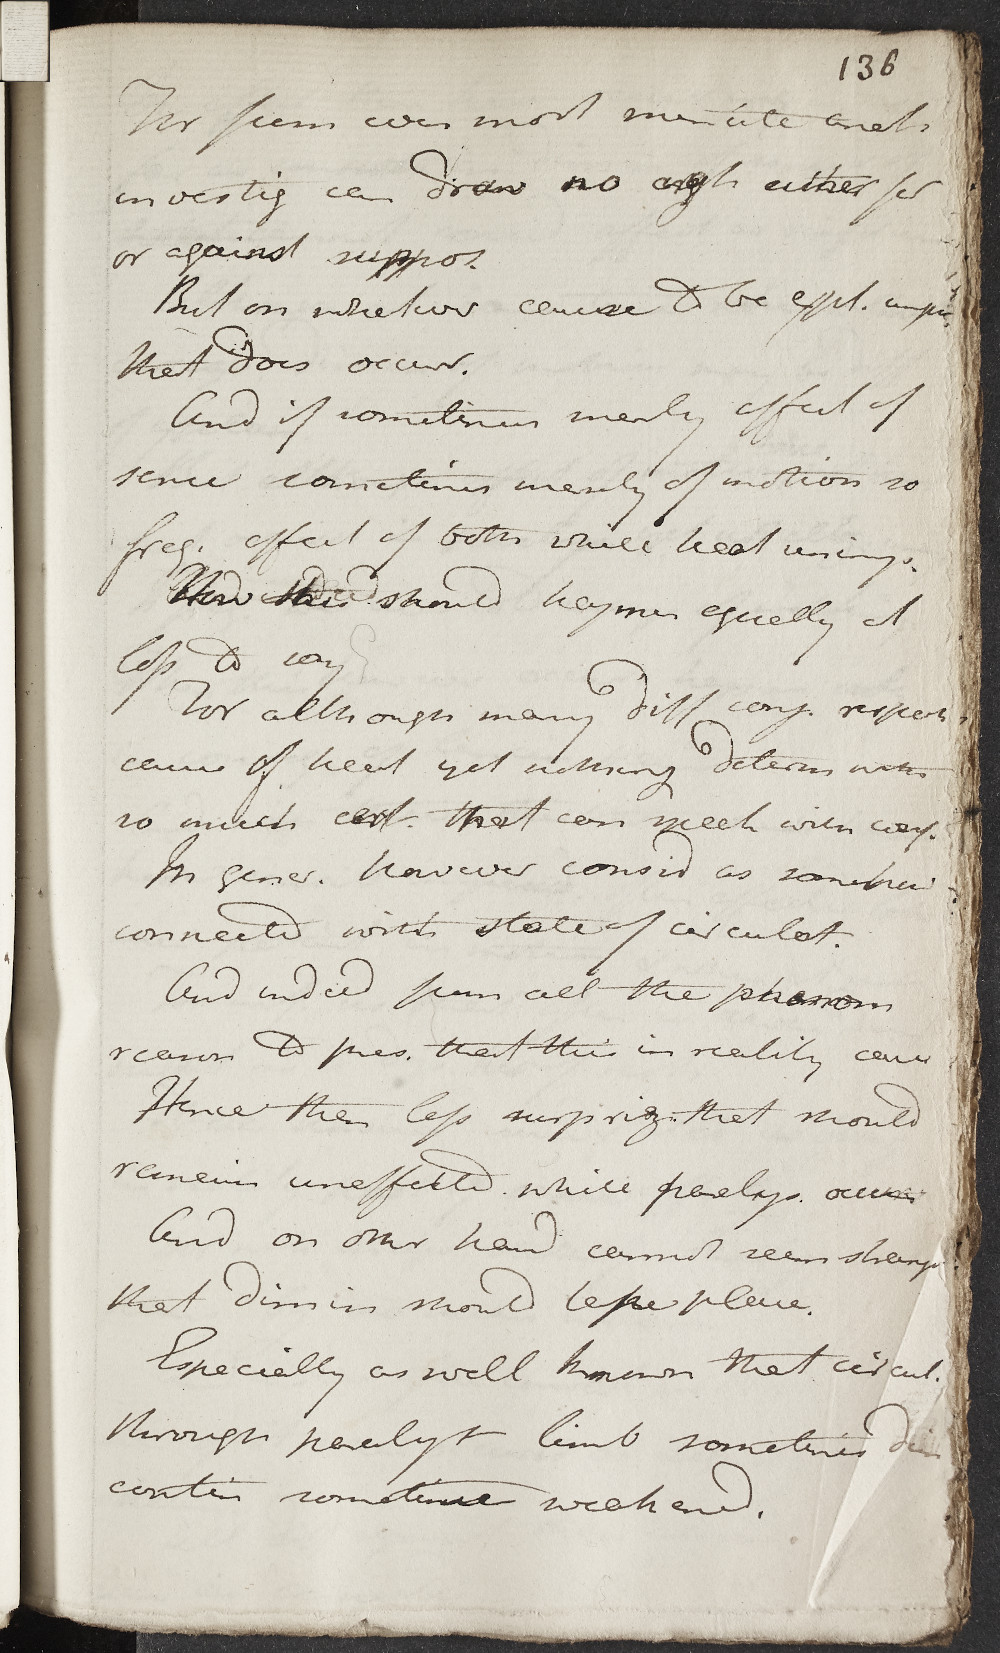 136
For from even most minute anat.
investig can draw no arg either for
or against suppos.
But on whatever cause to be expl.
that does occur.
And if sometimes merely effect of
sense sometimes merely of motion so
freq. effect of both while heat unimp.
How this should happen equally at
loss to say
For although many diff conj. respect
cause of heat yet nothing determ with
so much cert. that can speak with
In gener. however consid as somehow
connected with state of circulat.
And indeed from all the phenom
reason to pres. that this in reality cause
Hence then less surpriz. that should
remain uneffected while paralys. occurs
And on other hand cannot seem strange
that dimin should take place.
Especially as well known that circul.
through paralyt limb sometimes
contin sometimes weakened.